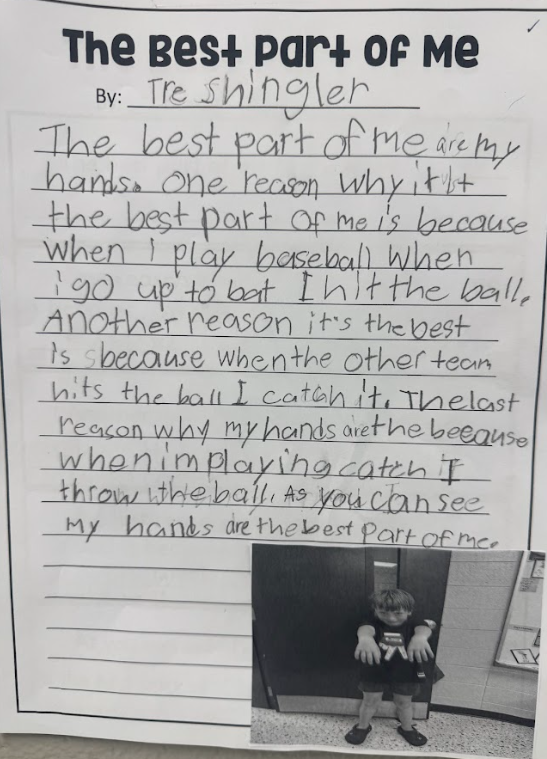 The Best Part Of Me
By: Tre Shingler
The best part of me are my
hands. One reason why it
the best part of me is because
when I play baseball when
i go up to bat I hit the ball.
Another reason it's the best
is because when the other team
hits the ball I catch it. The last
reason why my hands are the beeause
when im playing catch I
throw the ball. As you can see
My hands are the best part of me.